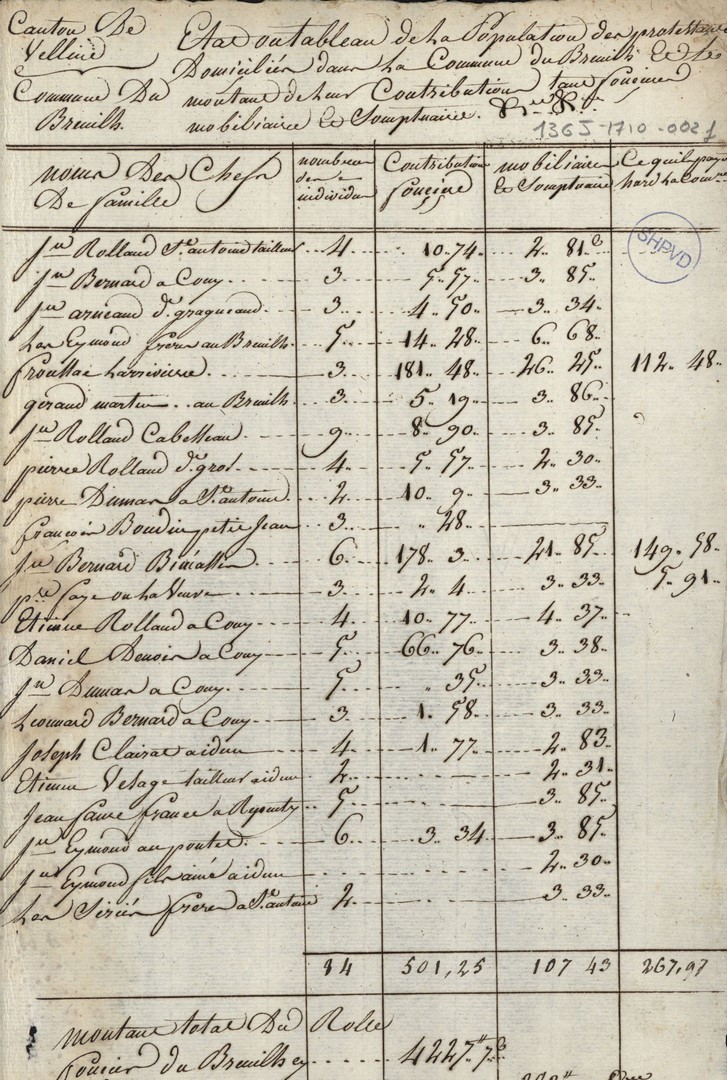 Canton De
Vellind
Commune Du
Breuilh.
Etat ou tableau de La Population des protestans
Domiciliés dans La Commune du Breuilh Et Le
montant de leur Contribution tant foncière
mobiliaire Et Somptuaire.
136J-1710-002 f
noms Des Chefs De famille
nombre des individus
Contribution foncière
mobiliaire & Somptuaire
Ce qu'il paye hors La Comne
SHPVD
Jn Rolland St antoine tailleur 4 10 74 2 81
Jn Bernard a Couy 3 5 57 3 85
Jn arneaud 3 4 50 3 34
Les Eymond freres au Breuilh 5 14 28 6 68
frouttae Larreviere 3 181 48 26 25 112 48
gerand martin au Breuilh 3 5 19 3 86
Jn Rolland Cabetteau 9 8 90 3 85
pierre Rolland dt gros 4 5 57 2 30
pierre Dumas a St antoine 2 10 9 3 33
francois Boudin petit Jean 3 " 28
Jn Bernard 6 178 3 21 85 149 58
pre faye ou La Veuve 3 2 4 3 33 5 91
Etienne Rolland a Couy 4 10 77 4 37
Daniel Denoix a Couy 5 66 76 3 38
Jn Dumas a Couy 5 " 35 3 33
Leonnard Bernard a Couy 3 1 58 3 33
Joseph Clairat aidun 4 1 77 2 83
Etienne Vesage tailleur aidun 2 2 31
Jean faure france a 5 3 85
Jn Eymond au pontet 6 3 34 3 85
Jn Eymond fils ainé aidun 2 30
Les freres a St antoine 2 3 33
84 501,25 107 43 267,97
montant total Du Rolle
foncier du Breuilh 4227 7